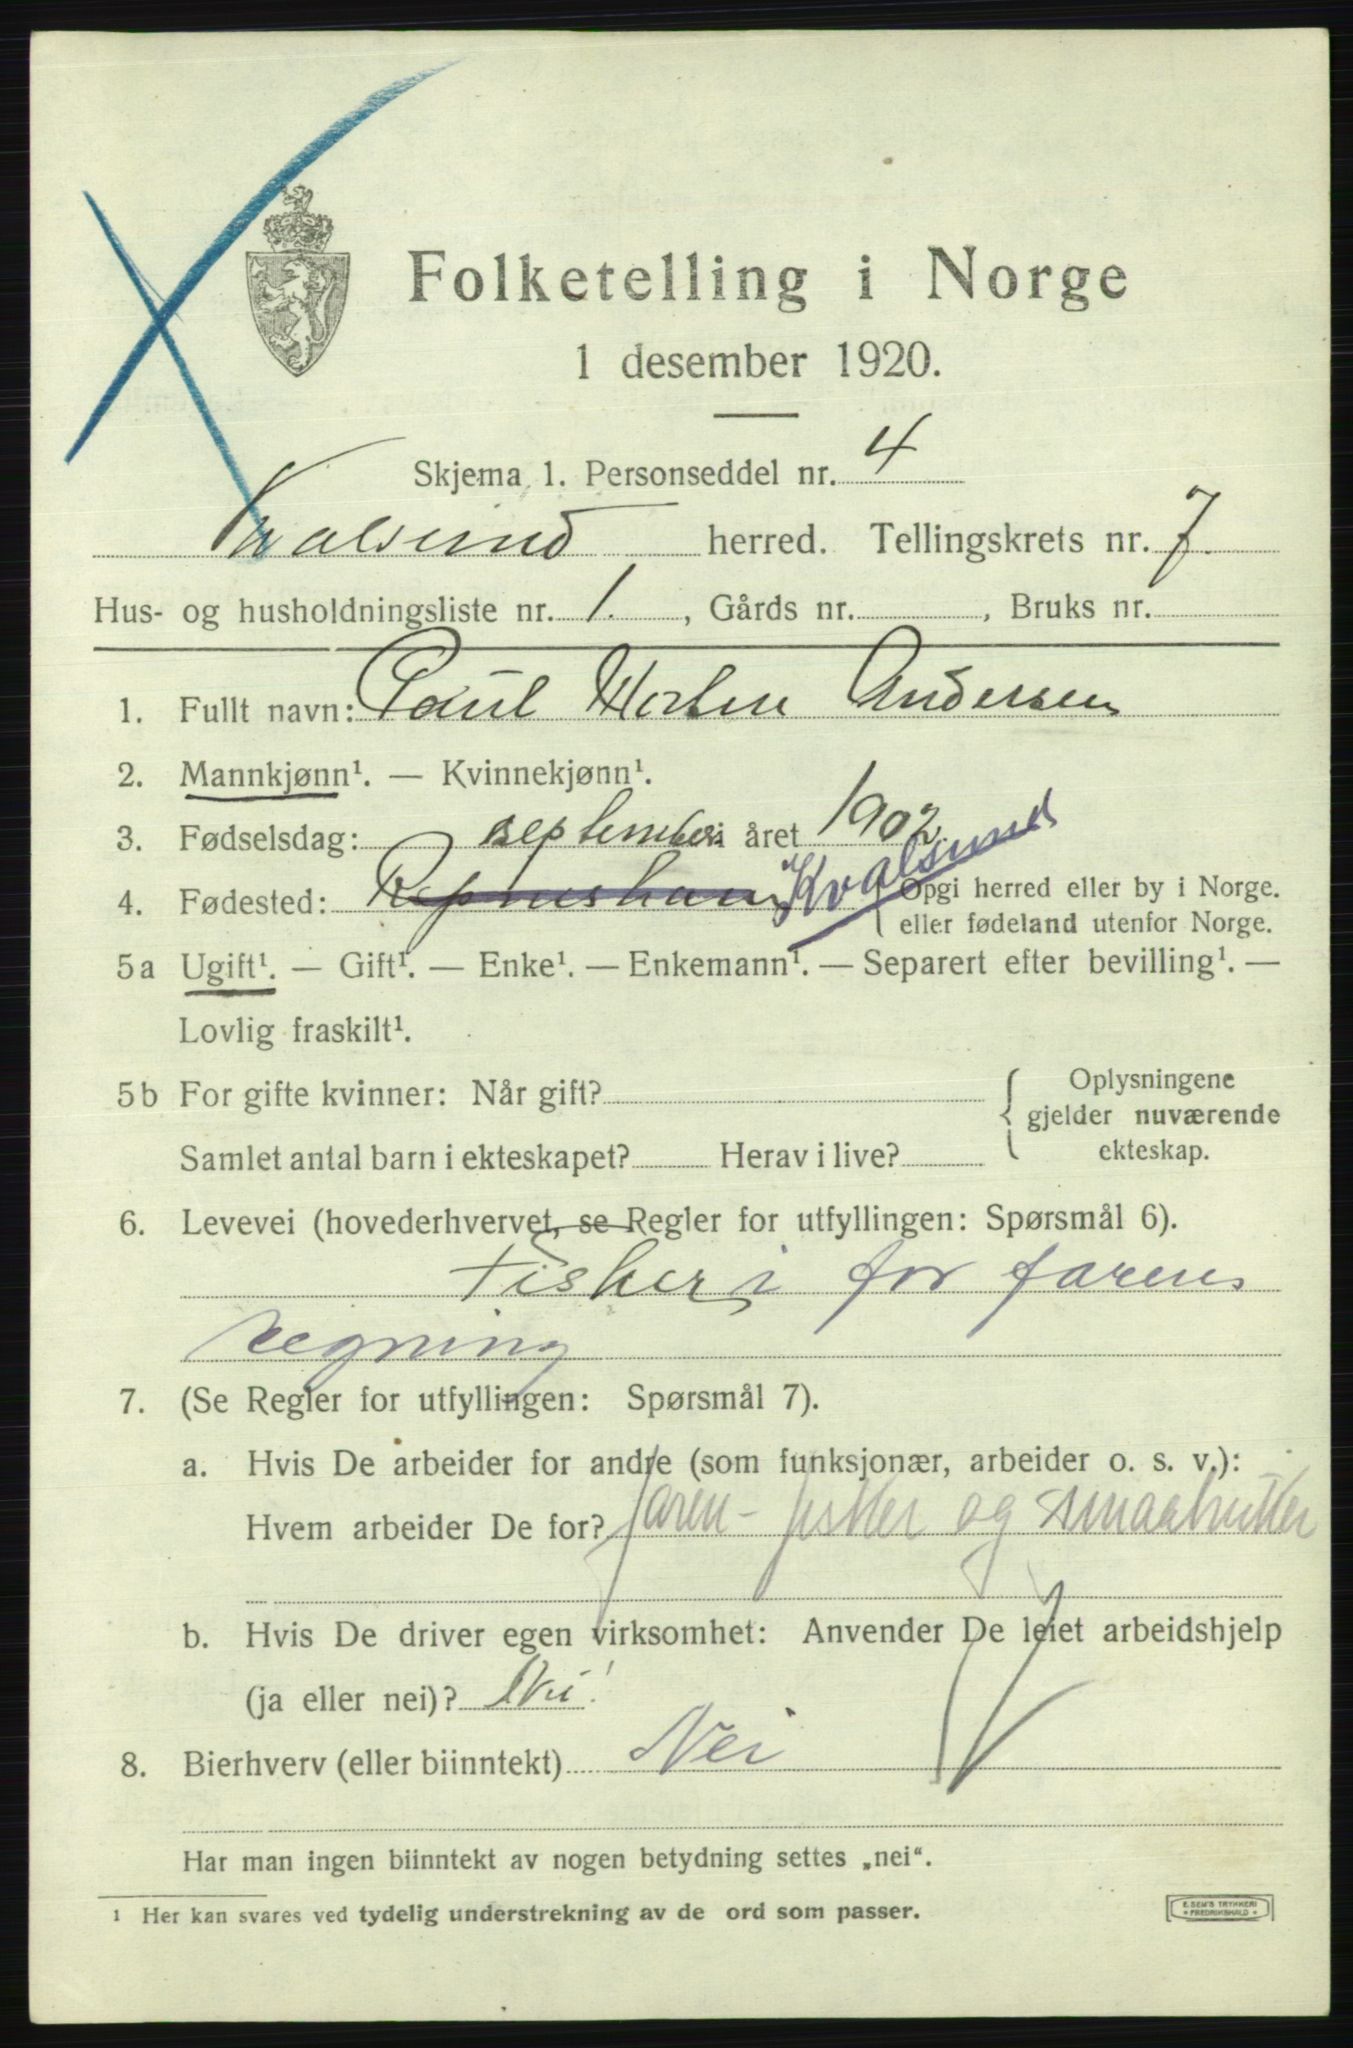 Folketelling i Norge
1 desember 1920.
Skjema 1. Personseddel nr. 4
Kvalsund herred. Tellingskrets nr. 7.
Hus- og husholdningsliste nr. 1. , Gårds nr. , Bruks nr.
1. Fullt navn: Paul Morten Andersen
2. Mannkjønn¹. — Kvinnekjønn¹.
3. Fødselsdag: september i året 1902
4. Fødested: Kvalsund
Opgi herred eller by i Norge.
eller fødeland utenfor Norge.
5a Ugift¹. — Gift¹. — Enke¹. — Enkemann¹. — Separert efter bevilling¹. —
Lovlig fraskilt¹.
5b For gifte kvinner: Når gift?
Samlet antal barn i ekteskapet? Herav i live?
Oplysningene
gjelder nuværende
ekteskap.
6. Levevei (hovederhvervet, se Regler for utfyllingen: Spørsmål 6).
Fisker i for farens
regning
7. (Se Regler for utfyllingen: Spørsmål 7).
a. Hvis De arbeider for andre (som funksjonær, arbeider o. s. v.):
Hvem arbeider De for? faren - fisker og smaabruker
b. Hvis De driver egen virksomhet: Anvender De leiet arbeidshjelp
(ja eller nei)? Nei!
8. Bierhverv (eller biinntekt) Nei
Har man ingen biinntekt av nogen betydning settes „nei“.
1 Her kan svares ved tydelig understrekning av de ord som passer.
E. SEM'S TRYKKERI
* FREDRIKSHALD *